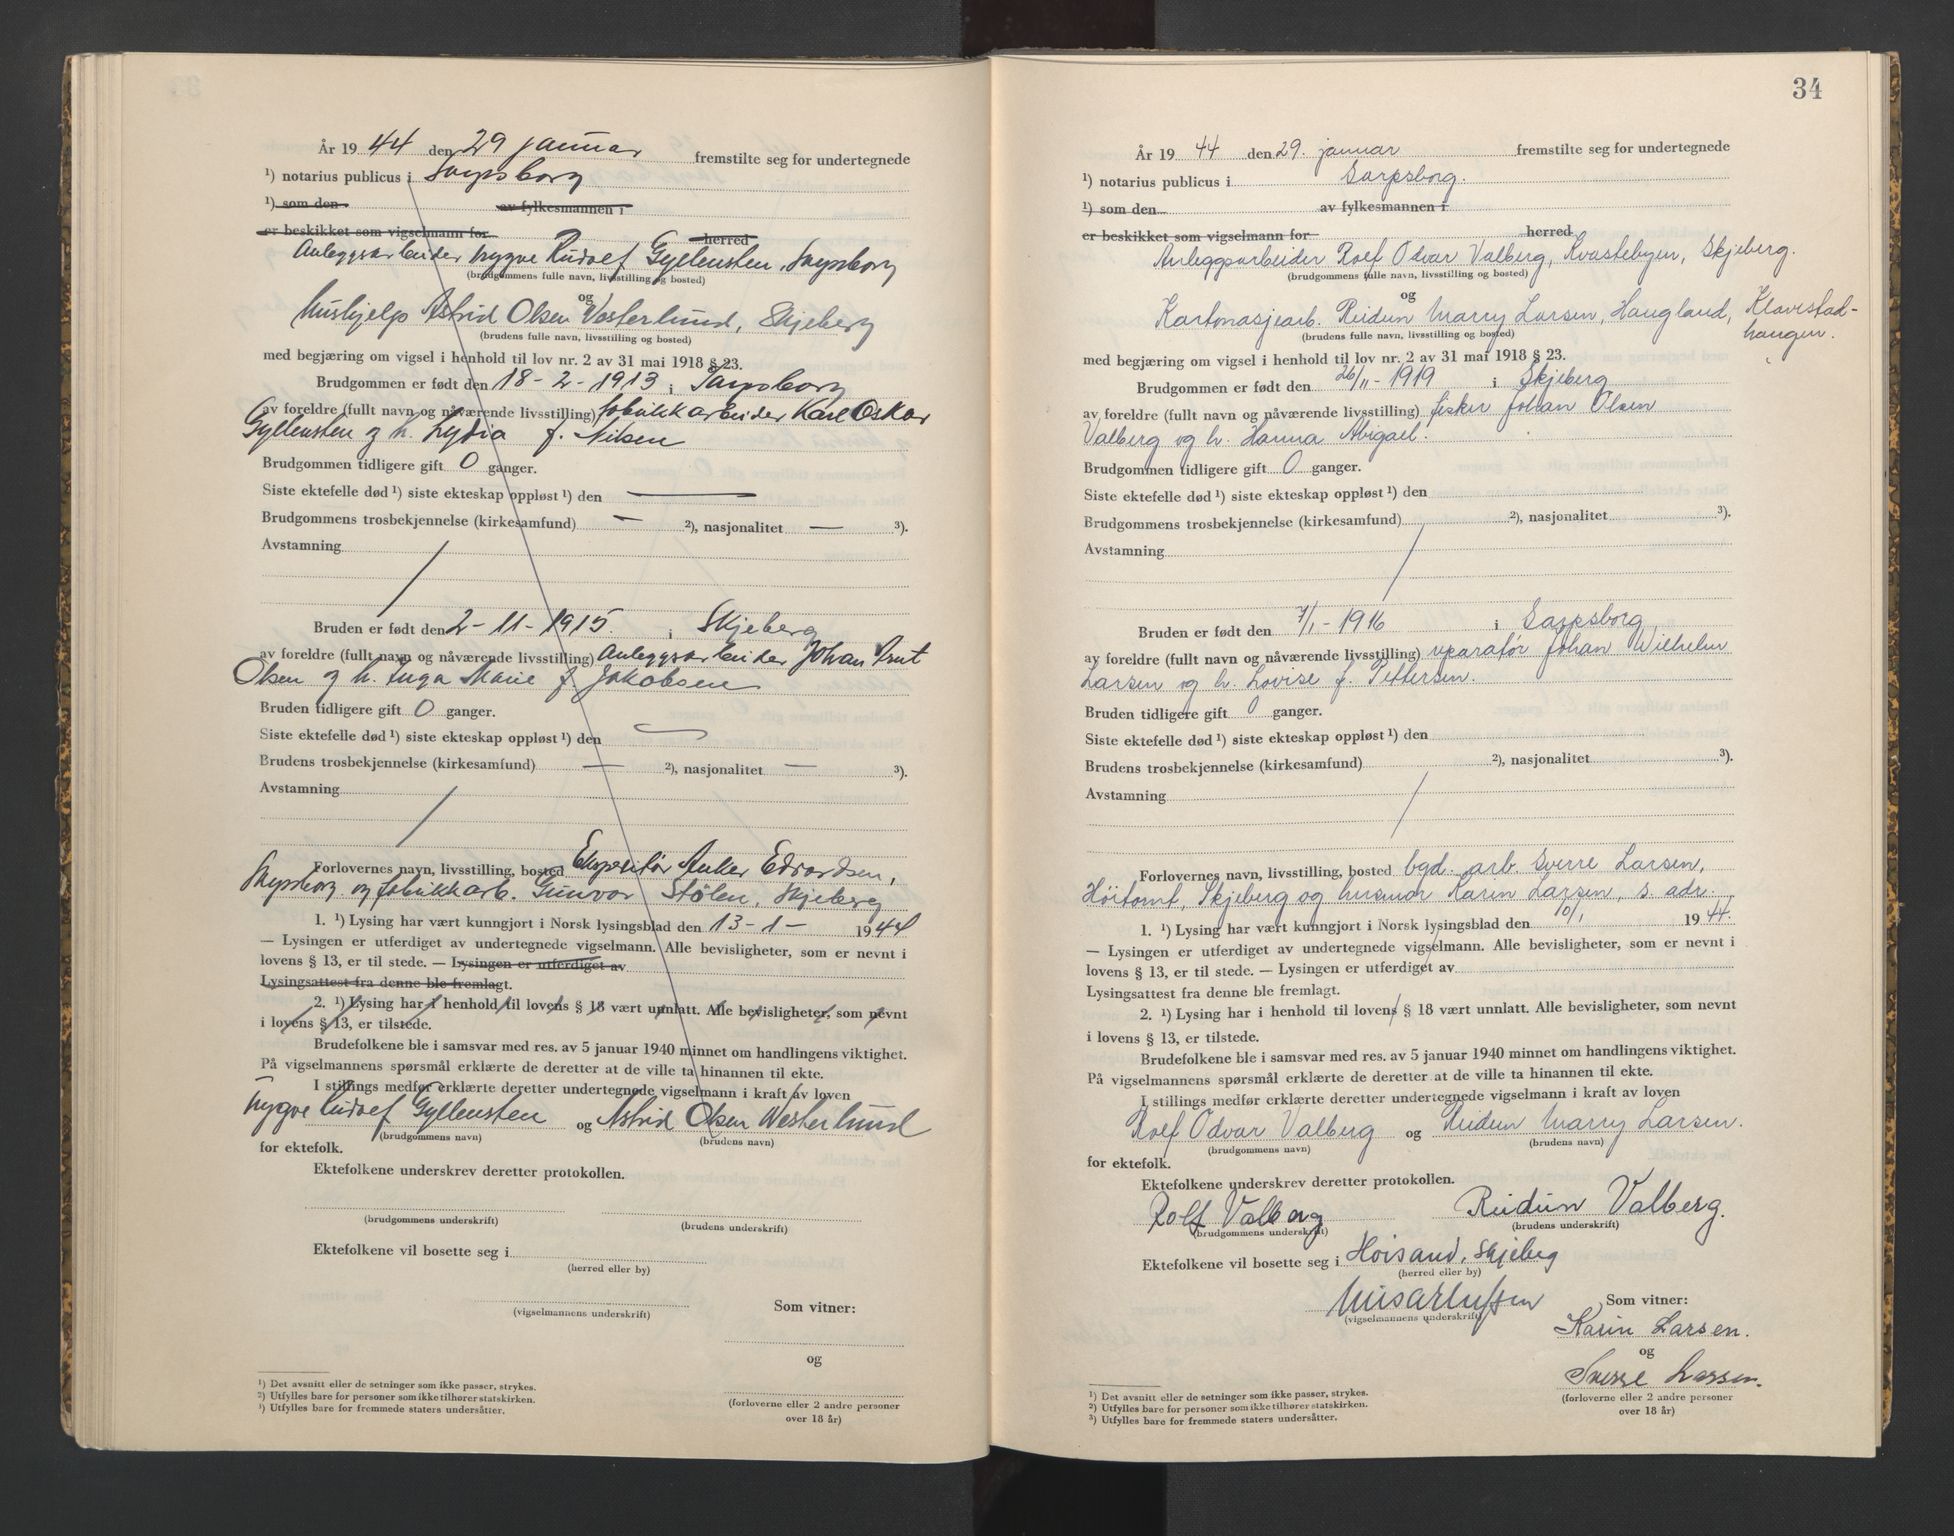 År 19 44 den 29 januar fremstilte seg for undertegnede
¹) notarius publicus i Sarpsborg
¹) som den av fylkesmannen i
er beskikket som vigselmann for herred
Anleggsarbeider Trygve Rudolf Gyllensten, Sarpsborg
(brudgommens fulle navn, livsstilling og bosted)
og
Hushjelp Astrid Olsen Westerlund, Skjeberg
(brudens fulle navn, livsstilling og bosted)
med begjæring om vigsel i henhold til lov nr. 2 av 31 mai 1918 § 23.
Brudgommen er født den 18-2-1913 i Sarpsborg
av foreldre (fullt navn og nåværende livsstilling) fabrikkarbeider Karl Oskar
Gyllensten og h. Lydia f. Nilsen
Brudgommen tidligere gift 0 ganger.
Siste ektefelle død ¹) siste ekteskap oppløst ¹) den —
Brudgommens trosbekjennelse (kirkesamfund) — ²), nasjonalitet — ³).
Avstamning
Bruden er født den 2-11-1915. i Skjeberg
av foreldre (fullt navn og nåværende livsstilling) Anleggsarbeider Johan
Olsen og h. Inga Marie f. Jakobsen
Bruden tidligere gift 0 ganger.
Siste ektefelle død ¹) siste ekteskap oppløst ¹) den
Brudens trosbekjennelse (kirkesamfund) — ²), nasjonalitet — ³).
Avstamning
Forlovernes navn, livsstilling, bosted Ekspeditør Anker Edvardsen,
Sarpsborg og fabrikkarb. Gunvor Stølen, Skjeberg
1. ¹) Lysing har vært kunngjort i Norsk lysingsblad den 13-1- 1944
— Lysingen er utferdiget av undertegnede vigselmann. Alle bevisligheter, som er nevnt i
lovens § 13, er til stede. — Lysingen er utferdiget av
Lysingsattest fra denne ble fremlagt.
2. ¹) Lysing har i henhold til lovens § 18 vært unnlatt. Alle bevisligheter, som nevnt
i lovens § 13, er tilstede.
Brudefolkene ble i samsvar med res. av 5 januar 1940 minnet om handlingens viktighet.
På vigselmannens spørsmål erklærte de deretter at de ville ta hinannen til ekte.
I stillings medfør erklærte deretter undertegnede vigselmann i kraft av loven
Trygve Rudolf Gyllensten og Astrid Olsen Westerlund
(brudgommens navn) (brudens navn)
for ektefolk.
Ektefolkene underskrev deretter protokollen.
(brudgommens underskrift) (brudens underskrift)
Ektefolkene vil bosette seg i
(herred eller by)
(vigselmannens underskrift) Som vitner:
og
(forloverne eller 2 andre personer
over 18 år)
¹) Det avsnitt eller de setninger som ikke passer, strykes.
²) Utfylles bare for personer som ikke tilhører statskirken.
³) Utfylles bare for fremmede staters undersåtter.
34
År 19 44 den 29. januar fremstilte seg for undertegnede
¹) notarius publicus i Sarpsborg.
¹) som den av fylkesmannen i
er beskikket som vigselmann for herred
Anleggsarbeider Rolf Odvar Valberg, Kvastebyen, Skjeberg.
(brudgommens fulle navn, livsstilling og bosted)
og
Kartonasjearb. Reidun Marry Larsen, Haugland, Klavestad-
haugen.
(brudens fulle navn, livsstilling og bosted)
med begjæring om vigsel i henhold til lov nr. 2 av 31 mai 1918 § 23.
Brudgommen er født den 26/11-1919 i Skjeberg
av foreldre (fullt navn og nåværende livsstilling) fisker Johan Olsen
Valberg og h. Hanna Abigael.
Brudgommen tidligere gift 0 ganger.
Siste ektefelle død ¹) siste ekteskap oppløst ¹) den
Brudgommens trosbekjennelse (kirkesamfund) ²), nasjonalitet ³).
Avstamning
Bruden er født den 7/1-1916 i Sarpsborg
av foreldre (fullt navn og nåværende livsstilling) reparatør Johan Wilhelm
Larsen og h. Lovise f. Pettersen.
Bruden tidligere gift 0 ganger.
Siste ektefelle død ¹) siste ekteskap oppløst ¹) den
Brudens trosbekjennelse (kirkesamfund) ²), nasjonalitet ³).
Avstamning
Forlovernes navn, livsstilling, bosted bgd. arb. Sverre Larsen,
Höitomt, Skjeberg og husmor Karin Larsen, s. adr.
1. ¹) Lysing har vært kunngjort i Norsk lysingsblad den 10/1 1944.
— Lysingen er utferdiget av undertegnede vigselmann. Alle bevisligheter, som er nevnt i
lovens § 13, er til stede. — Lysingen er utferdiget av
Lysingsattest fra denne ble fremlagt.
2. ¹) Lysing har i henhold til lovens § 18 vært unnlatt. Alle bevisligheter, som nevnt
i lovens § 13, er tilstede.
Brudefolkene ble i samsvar med res. av 5 januar 1940 minnet om handlingens viktighet.
På vigselmannens spørsmål erklærte de deretter at de ville ta hinannen til ekte.
I stillings medfør erklærte deretter undertegnede vigselmann i kraft av loven
Rolf Odvar Valberg og Reidun Marry Larsen.
(brudgommens navn) (brudens navn)
for ektefolk.
Ektefolkene underskrev deretter protokollen.
Rolf Valberg Reidun Valberg.
(brudgommens underskrift) (brudens underskrift)
Ektefolkene vil bosette seg i Höisand, Skjeberg
(herred eller by)
(vigselmannens underskrift) Som vitner:
Karin Larsen.
og
Sverre Larsen.
(forloverne eller 2 andre personer
over 18 år)
¹) Det avsnitt eller de setninger som ikke passer, strykes.
²) Utfylles bare for personer som ikke tilhører statskirken.
³) Utfylles bare for fremmede staters undersåtter.